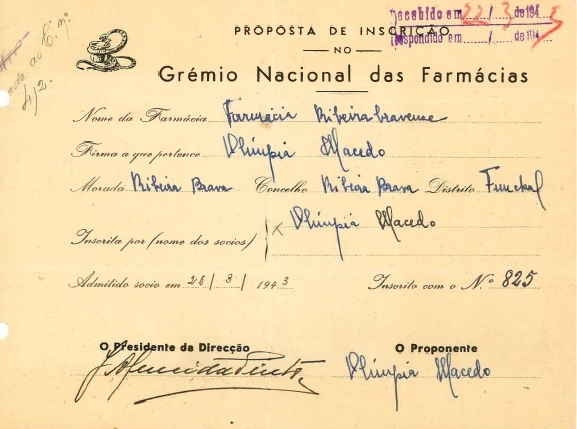 recebido em 22 / 3 / de 194 3
respondido em / de 194
PROPOSTA DE INSCRIÇÃO
NO
Grémio Nacional das Farmácias
4/2.
Nome da Farmácia Farmácia Ribeira-bravense
Firma a que pertence Olímpia Macedo
Morada Ribeira Brava Concelho Ribeira Brava Distrito Funchal
Inscrita por (nome dos socios) Olímpia Macedo
Admitido socio em 25 / 3 / 194 3 Inscrito com o N.º 825
O Presidente da Direcção O Proponente
Olímpia Macedo